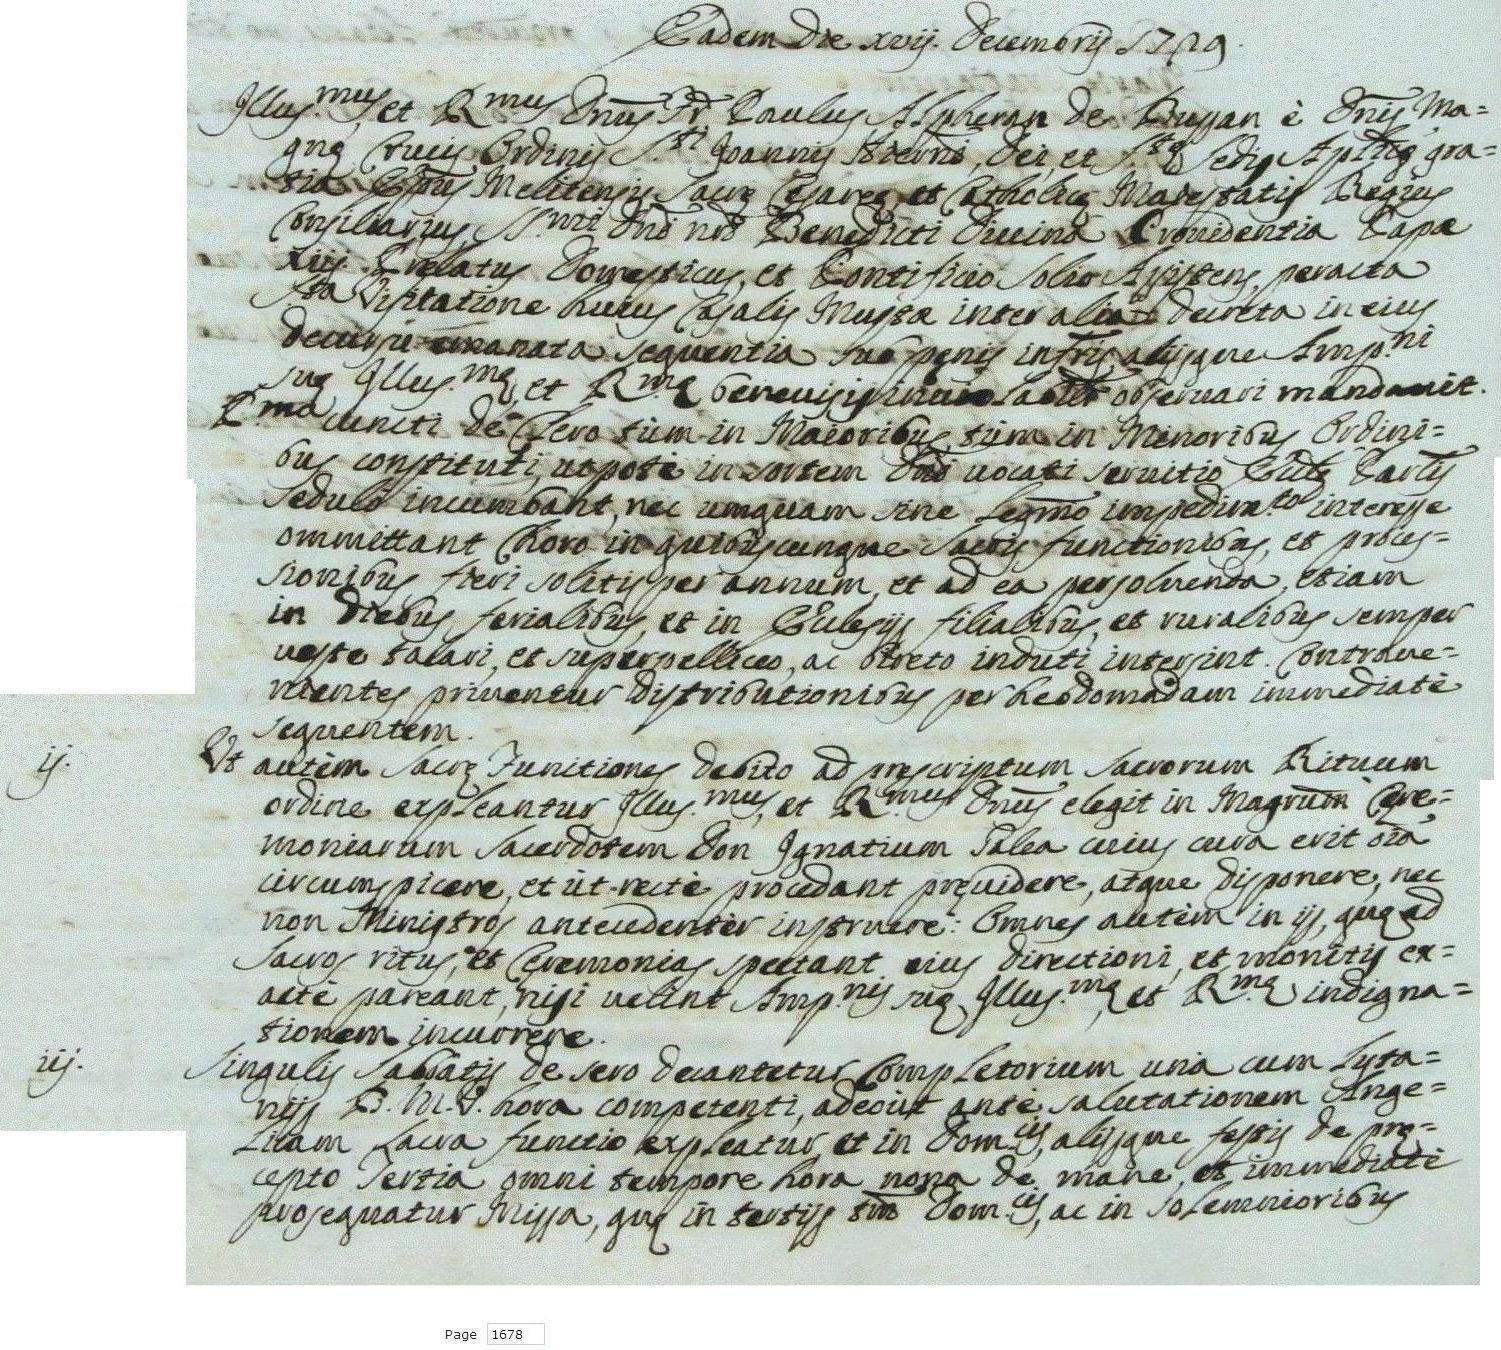 Eadem Die xvij. Decembris 1729.
Illus.mus, et R.mus Dnus Fr. Paulus Alpheran de Bussan è Dnis Ma=
gnę Crucis Ordinis S.ti Joannis Hierni, Dei, et S.tę Sedis Aplicę gra=
tia Epus Melitensis Sacrę Cesareę et Catholicę Maiestatis Regius
Consiliarius SS.mi Dni nri Benedicti Divina Providentia Papæ
xiij. Prelatus Domesticus, et Pontificio Solio Assistens, peracta
Sta Visitatione huius Casalis Mustæ inter alia decreta in eius
decursu emanata sequentia sub penis infris alijsque Amp.ni
suę Illus.mę, et R.mę observari mandavit.
P.mo cuncti de Clero tùm in Maioribus tùm in Minoribus Ordini=
bus constituti, utpotè in sortem Dni vocati servitio Parlis
sedulò incumbant, nec umquam sine Legmo impedim.to interesse
ommittant Choro in quibuscunque sacris functionibus, et proces=
sionibus fieri solitis per annum, et ad ea persolvenda, etiam
in Diebus ferialibus, et in Ecclesijs filialibus, et ruralibus semper
veste talari, et superpelliceo, ac bireto induti intersint. Contrave=
nientes priventur distributionibus per hebdomadam immediatè
sequentem.
ij. Ut autèm Sacrę Functiones debito ad prescriptum Sacrorum Rituum
ordine expleantur, Illus.mus, et R.mus Dnus elegit in Magrum Cęre=
moniarum Sacerdotem Don Ignatium Talea cuius cura erit oia
circumspicere, et ùt rectè procedant pręvidere, atque disponere, nec
non Ministros antecedentèr instruere: Omnes autèm in ijs, quę ad
Sacros ritus, et Ceremonias spectant eius directioni, et monitis ex=
actè pareant, nisi velint Amp.nis suę Illus.mę, et R.mę indigna=
tionem incurrere.
iij. Singulis Sabbatis de sero decantetur Completorium unà cum Lyta=
nijs B. M. V. hora competenti, adeout antè salutationem Ange=
licam sacra functio expleatur, et in Dom.cis, alijsque festis de prę=
cepto Tertia omni tempore hora nona de mane, et immediatè
prosequatur Missa, quę in tertijs tm Dom.cis, ac in solemnioribus
Page 1678